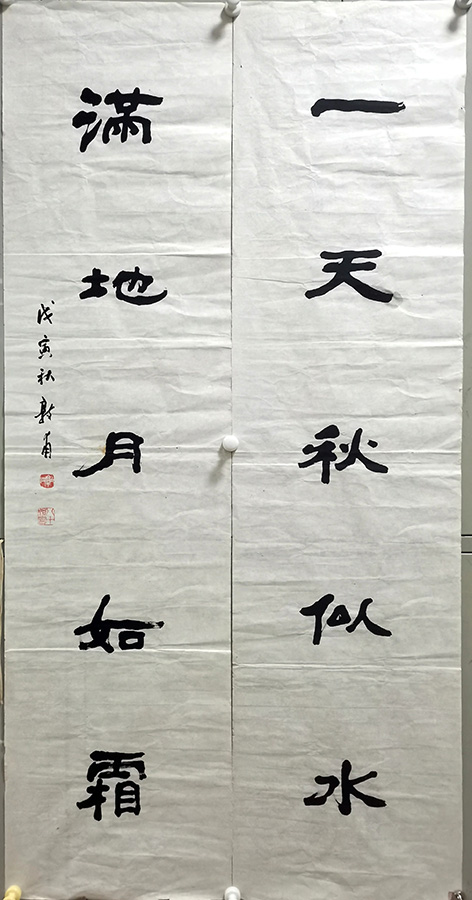 一天秋似水
满地月如霜
戊寅秋